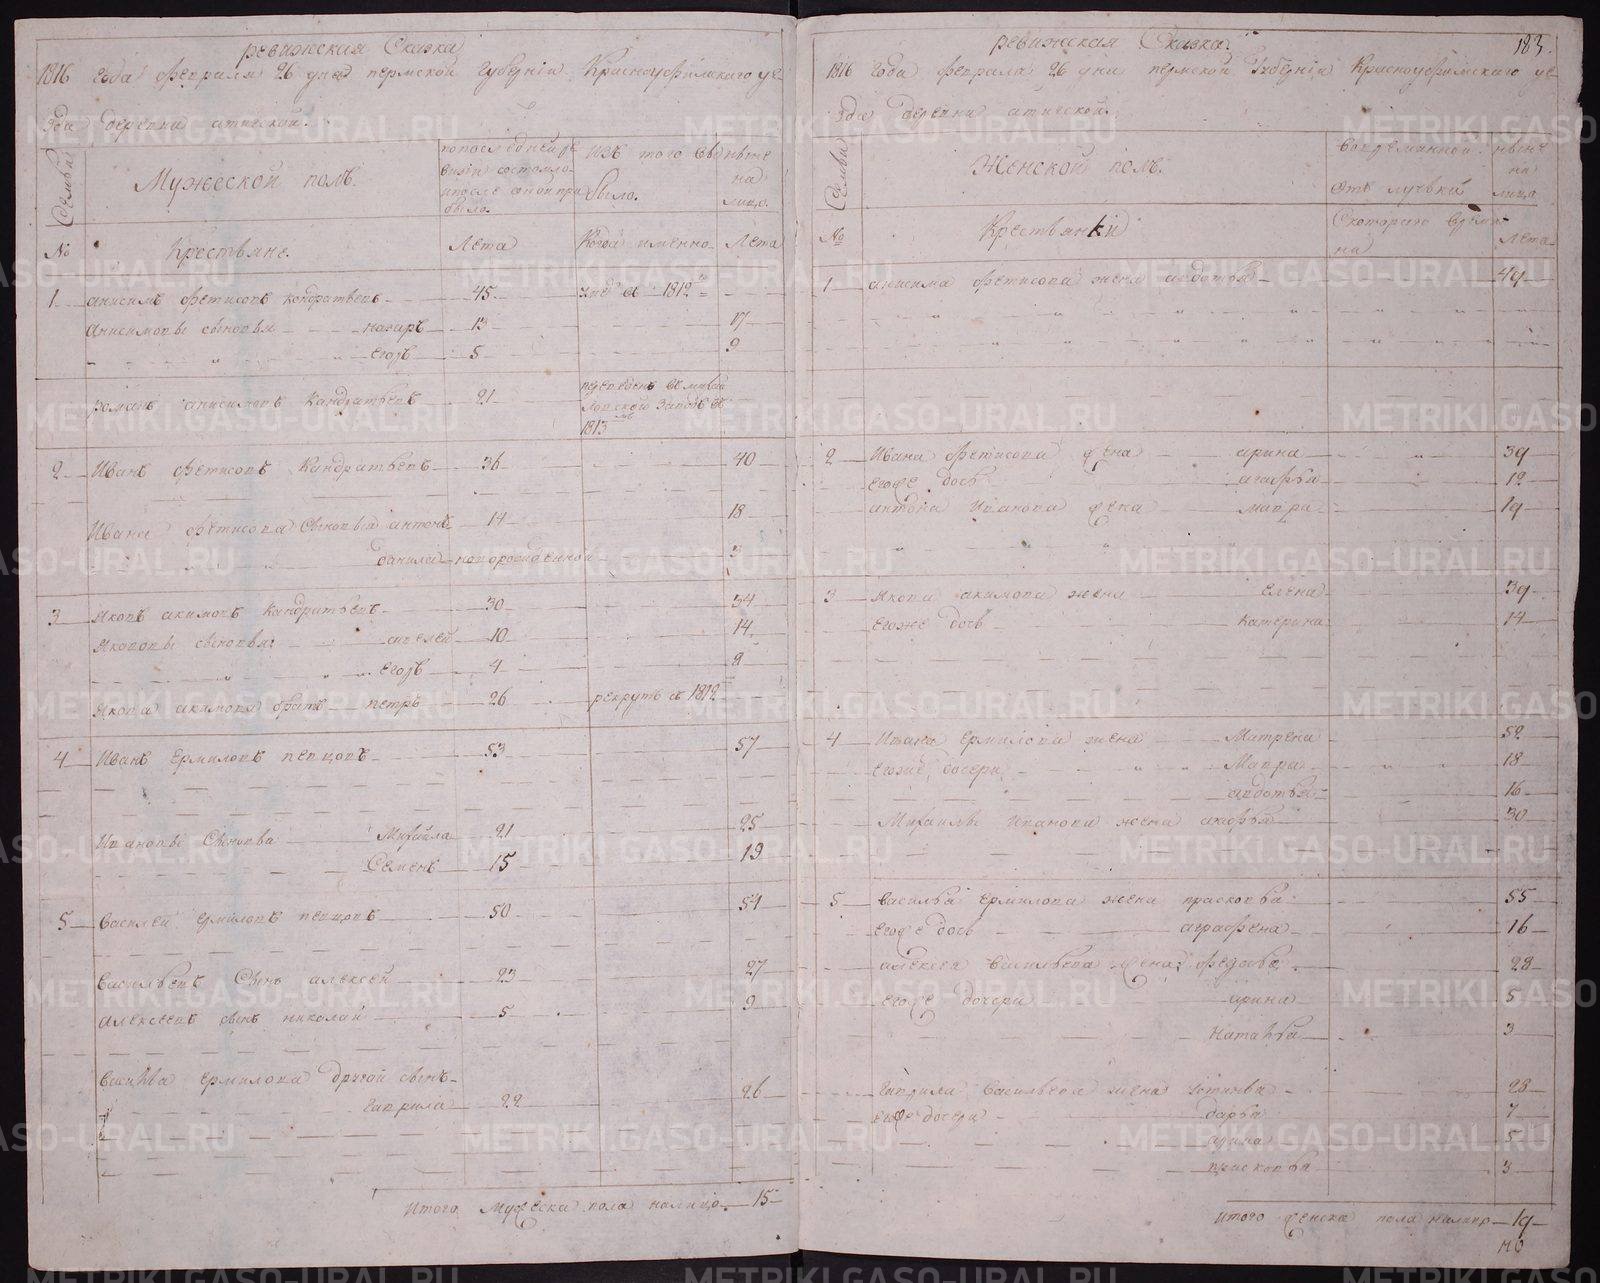 ревижская Сказка
1816 года февраля 26 дня пермской Губерніи Красноуфимскаго уе-
зда деревни атигской.
Семьи
Мужеской полъ.
по последней ре
визіи состояло
и после оной при
было.
изъ того
было.
ныне
на
лицо.
№ Крестьяне. Лета Когда именно Лета
1 анисимъ фетисовъ кондратьевъ 45 1812
Анисимовы сыновья назаръ 13 17
Егоръ 5 9
романъ анисимовъ Кандратьевъ 21
1813
2 Иванъ фетисовъ Кандратьевъ 36 40
Ивана фетисова Сыновья антонъ 14 18
данила новорожденной 3
3 Яковъ акимовъ Кандратьевъ 30 34
Яковов сыновья: 10 14
Егоръ 4 8
Якова акимова братъ петръ 26 рекрутъ въ 1812
4 Иванъ Ермиловъ певцовъ 53 57
Ивановы Сыновья Михайла 21 25
Семенъ 15 19
5 Василей Ермиловъ певцовъ 50 54
Васильевъ Сынъ алексей 23 27
алексеевъ сынъ николай 5 9
Василья Ермилова другой сынъ
гаврила 22 26
Итого Мужеска пола налицо 15
183.
ревижская Сказка.
1816 года февраля 26 дня пермской Губерніи Красноуфимскаго уе-
зда деревни атигской.
Семьи
Женской полъ.
во временной
отлучки
ныне
на
лицо
№ Крестьянки
Скотораго време-
ни
Лета
1 анисима фетисова жена авдотья 49
2 Ивана фетисова жена арина 39
Егоже дочь агафья 12
антона Иванова жена мавра 19
3 Якова акимова жена Елена 39
Егоже дочь Катерина 14
4 Ивана Ермилова жена Матрена 52
Егоже дочери Мавра 18
авдотья 16
Михаилы Иванова жена 30
5 Василья Ермилова жена прасковья 55
Егоже дочь аграфена 16
алексея Васильева жена 28
Егоже дочери ирина 5
Наталья 3
гаврила Васильева жена устинья 28
Егоже дочери дарья 7
5
прасковья 3
Итого женска пола налицо 19